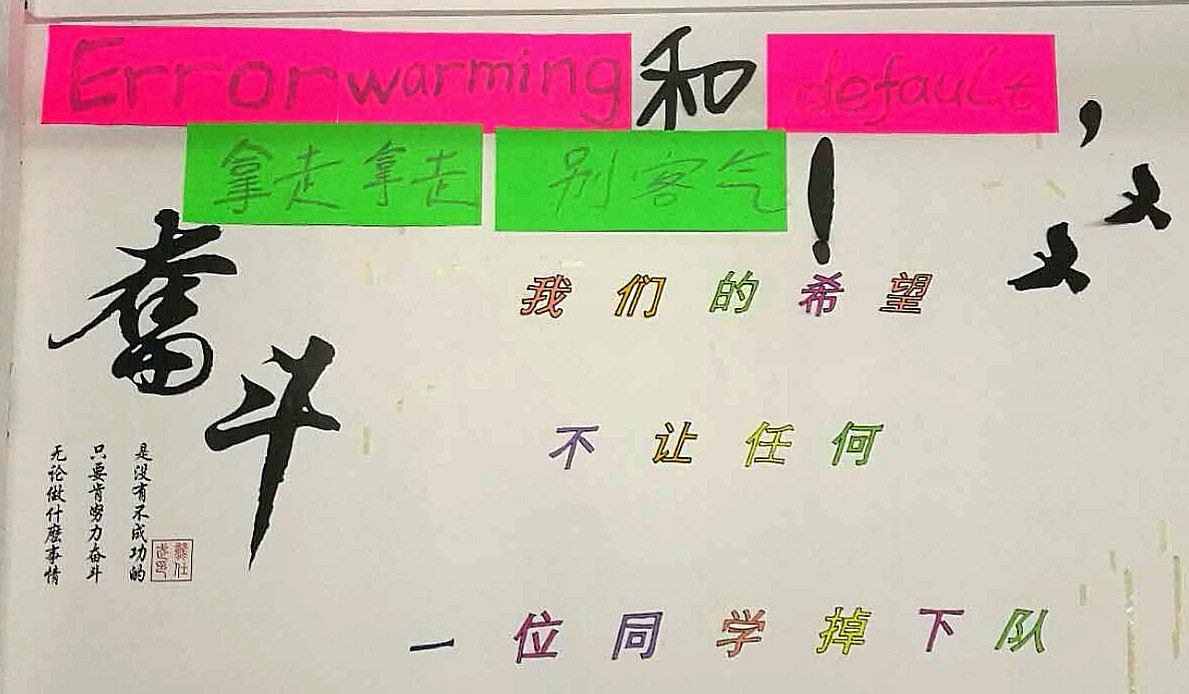 Error warming 和 default，
拿走 拿走 别客气！
奋斗
我们的希望
不让任何
一位同学掉下队
无论做什麽事情
只要肯努力奋斗
是没有不成功的